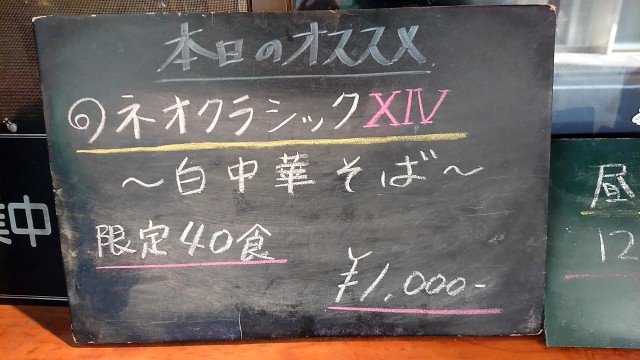 本日のオススメ
のネオクラシックXIV
～白中華そば～
限定40食
¥1,000-
中
昼
12